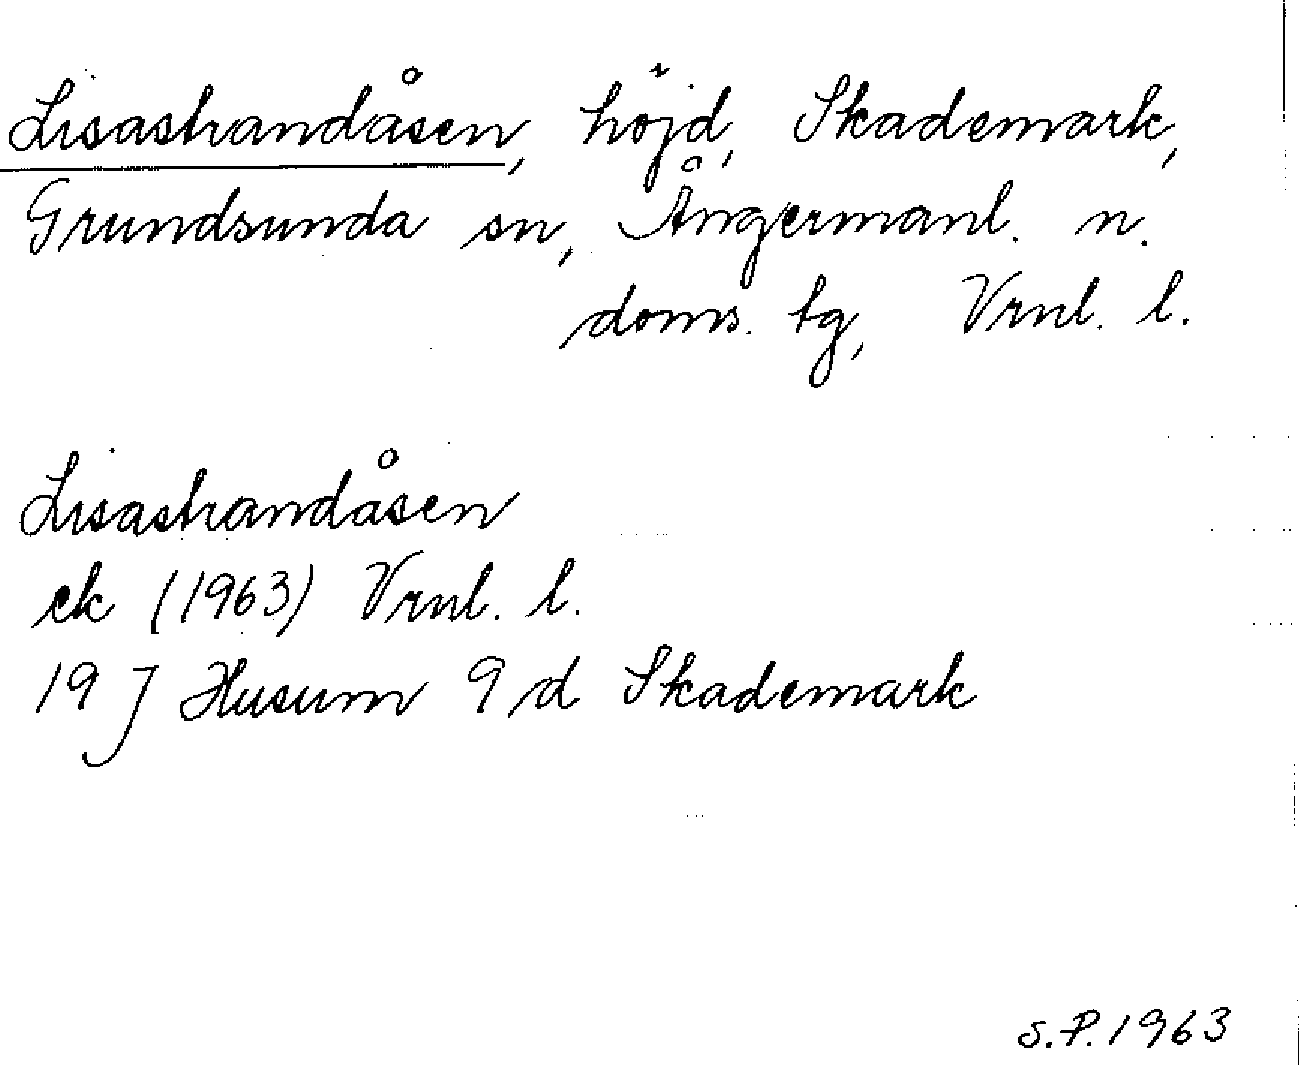 Lisastrandåsen, höjd, Skademark,
Grundsunda sn, Ångermanl. n.
doms. tg, Vrnl. l.
Lisastrandåsen
ek (1963) Vrnl. l.
19 J Husum 9 d Skademark
S.P. 1963